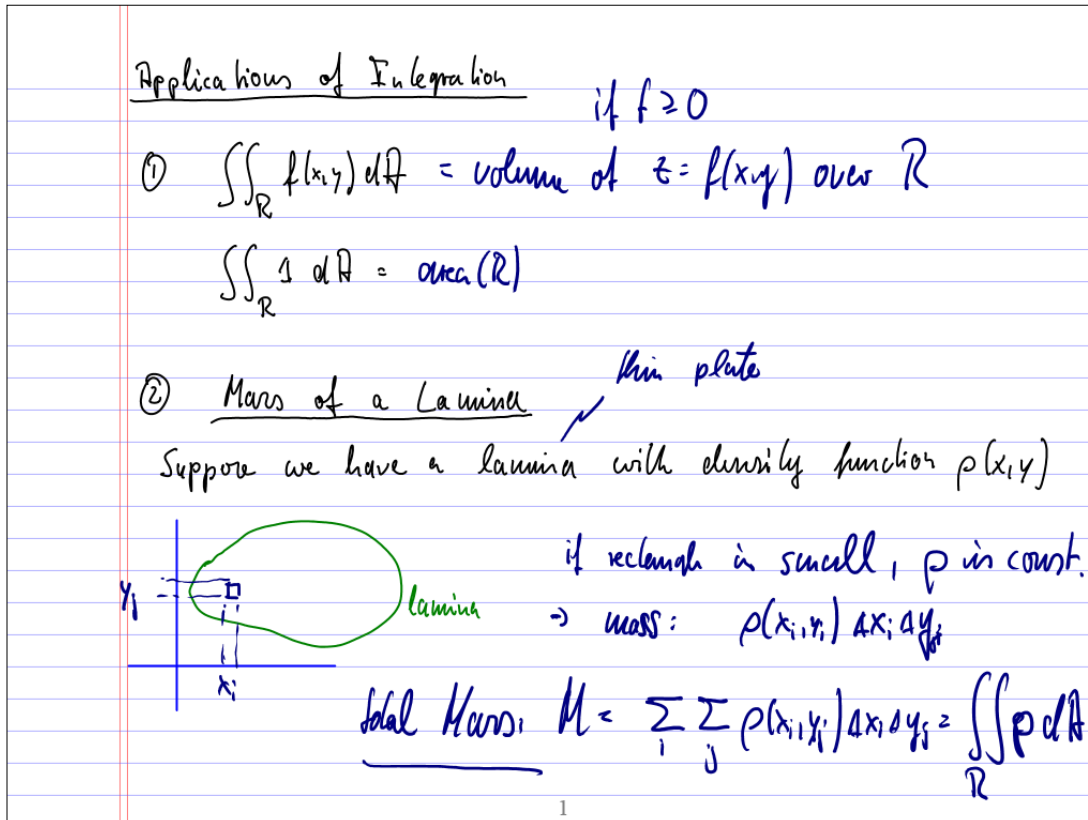 Applications of Integration
if f ≥ 0
① ∬_R f(x,y) dA = volume of z = f(x,y) over R
∬_R 1 dA = area(R)
thin plate
② Mass of a Lamina
Suppose we have a lamina with density function ρ(x,y)
if rectangle is small, ρ is const.
y_j
lamina
→ mass: ρ(x_i, y_j) Δx_i Δy_j
x_i
total Mass: M = Σ_i Σ_j ρ(x_i, y_j) Δx_i Δy_j = ∬_R ρ dA
1